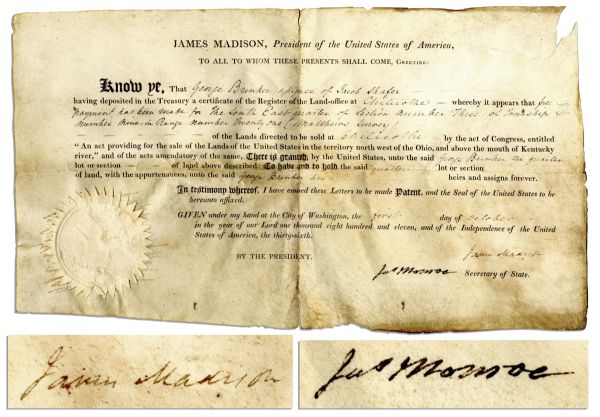 JAMES MADISON, President of the United States of America,
TO ALL TO WHOM THESE PRESENTS SHALL COME, GREETING:
Know ye, That George Brinker assignee of Jacob Shafer
having deposited in the Treasury a certificate of the Register of the Land-office at Chillicothe whereby it appears that full
payment has been made for The South East quarter of Section number Three of Township
number Nine, in Range number Twenty one (
of the Lands directed to be sold at Chillicothe by the act of Congress, entitled
"An act providing for the sale of the Lands of the United States in the territory north west of the Ohio, and above the mouth of Kentucky
river," and of the acts amendatory of the same, There is granted, by the United States, unto the said George Brinker the quarter
lot or section of land above described: To have and to hold the said quarter lot or section
of land, with the appurtenances, unto the said George Brinker his heirs and assigns forever.
In testimony whereof, I have caused these Letters to be made Patent, and the Seal of the United States to be
hereunto affixed.
GIVEN under my hand at the City of Washington, the first day of October
in the year of our Lord one thousand eight hundred and eleven, and of the Independence of the United
States of America, the thirty-sixth.
BY THE PRESIDENT.
James Madison
Jas Monroe Secretary of State.
James Madison
Jas Monroe